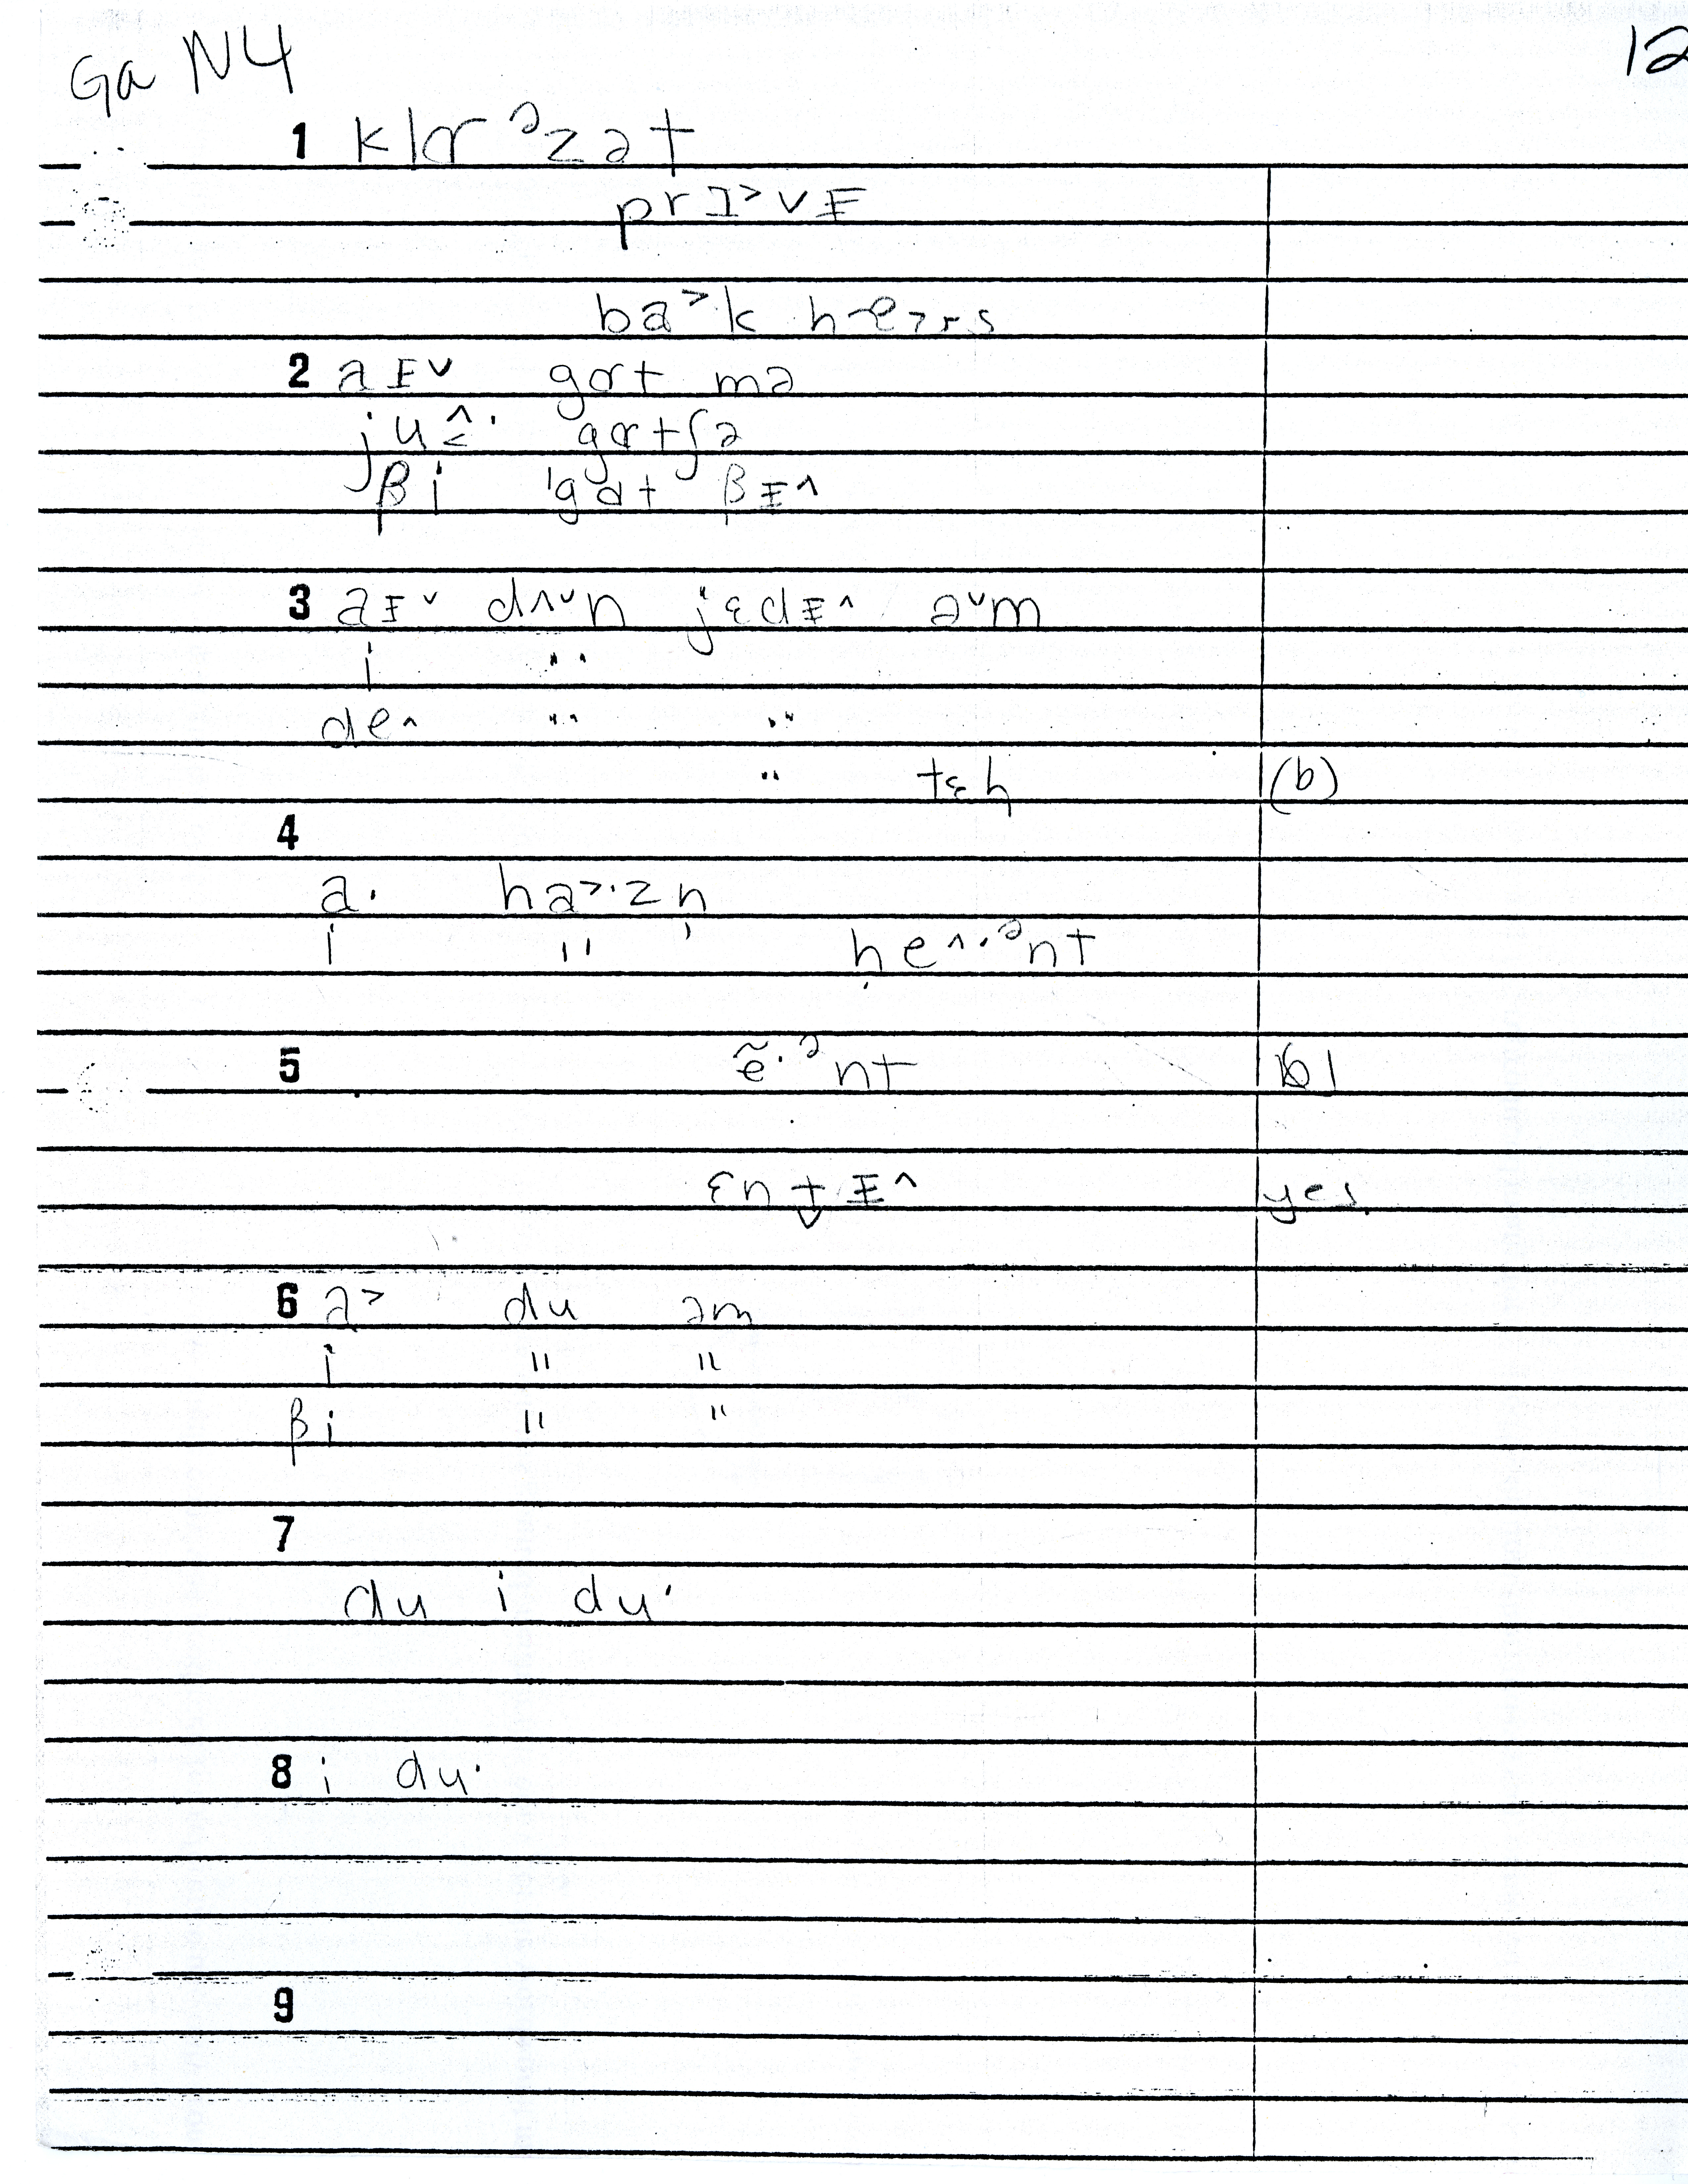 Ga N4 12
1 klɑr ᵊzət
prI˃vɪ
ba˃k
2 aɪ˅ gɑt mə
ju gɑtʃə
βi ˈgɑt βɪ^
3 aɪ˅ dʌ˅n jɛdɪ^ ə˅m
i "
de^ " "
" tɛh (b)
4
a· ha˃·zn̩
i " ̩ he^·ᵊnt
5 ẽ·ᵊnt
ɛntɪ^ yes.
6 a˃ du əm
i " "
βi " "
7
du i du·
8 i du·
9